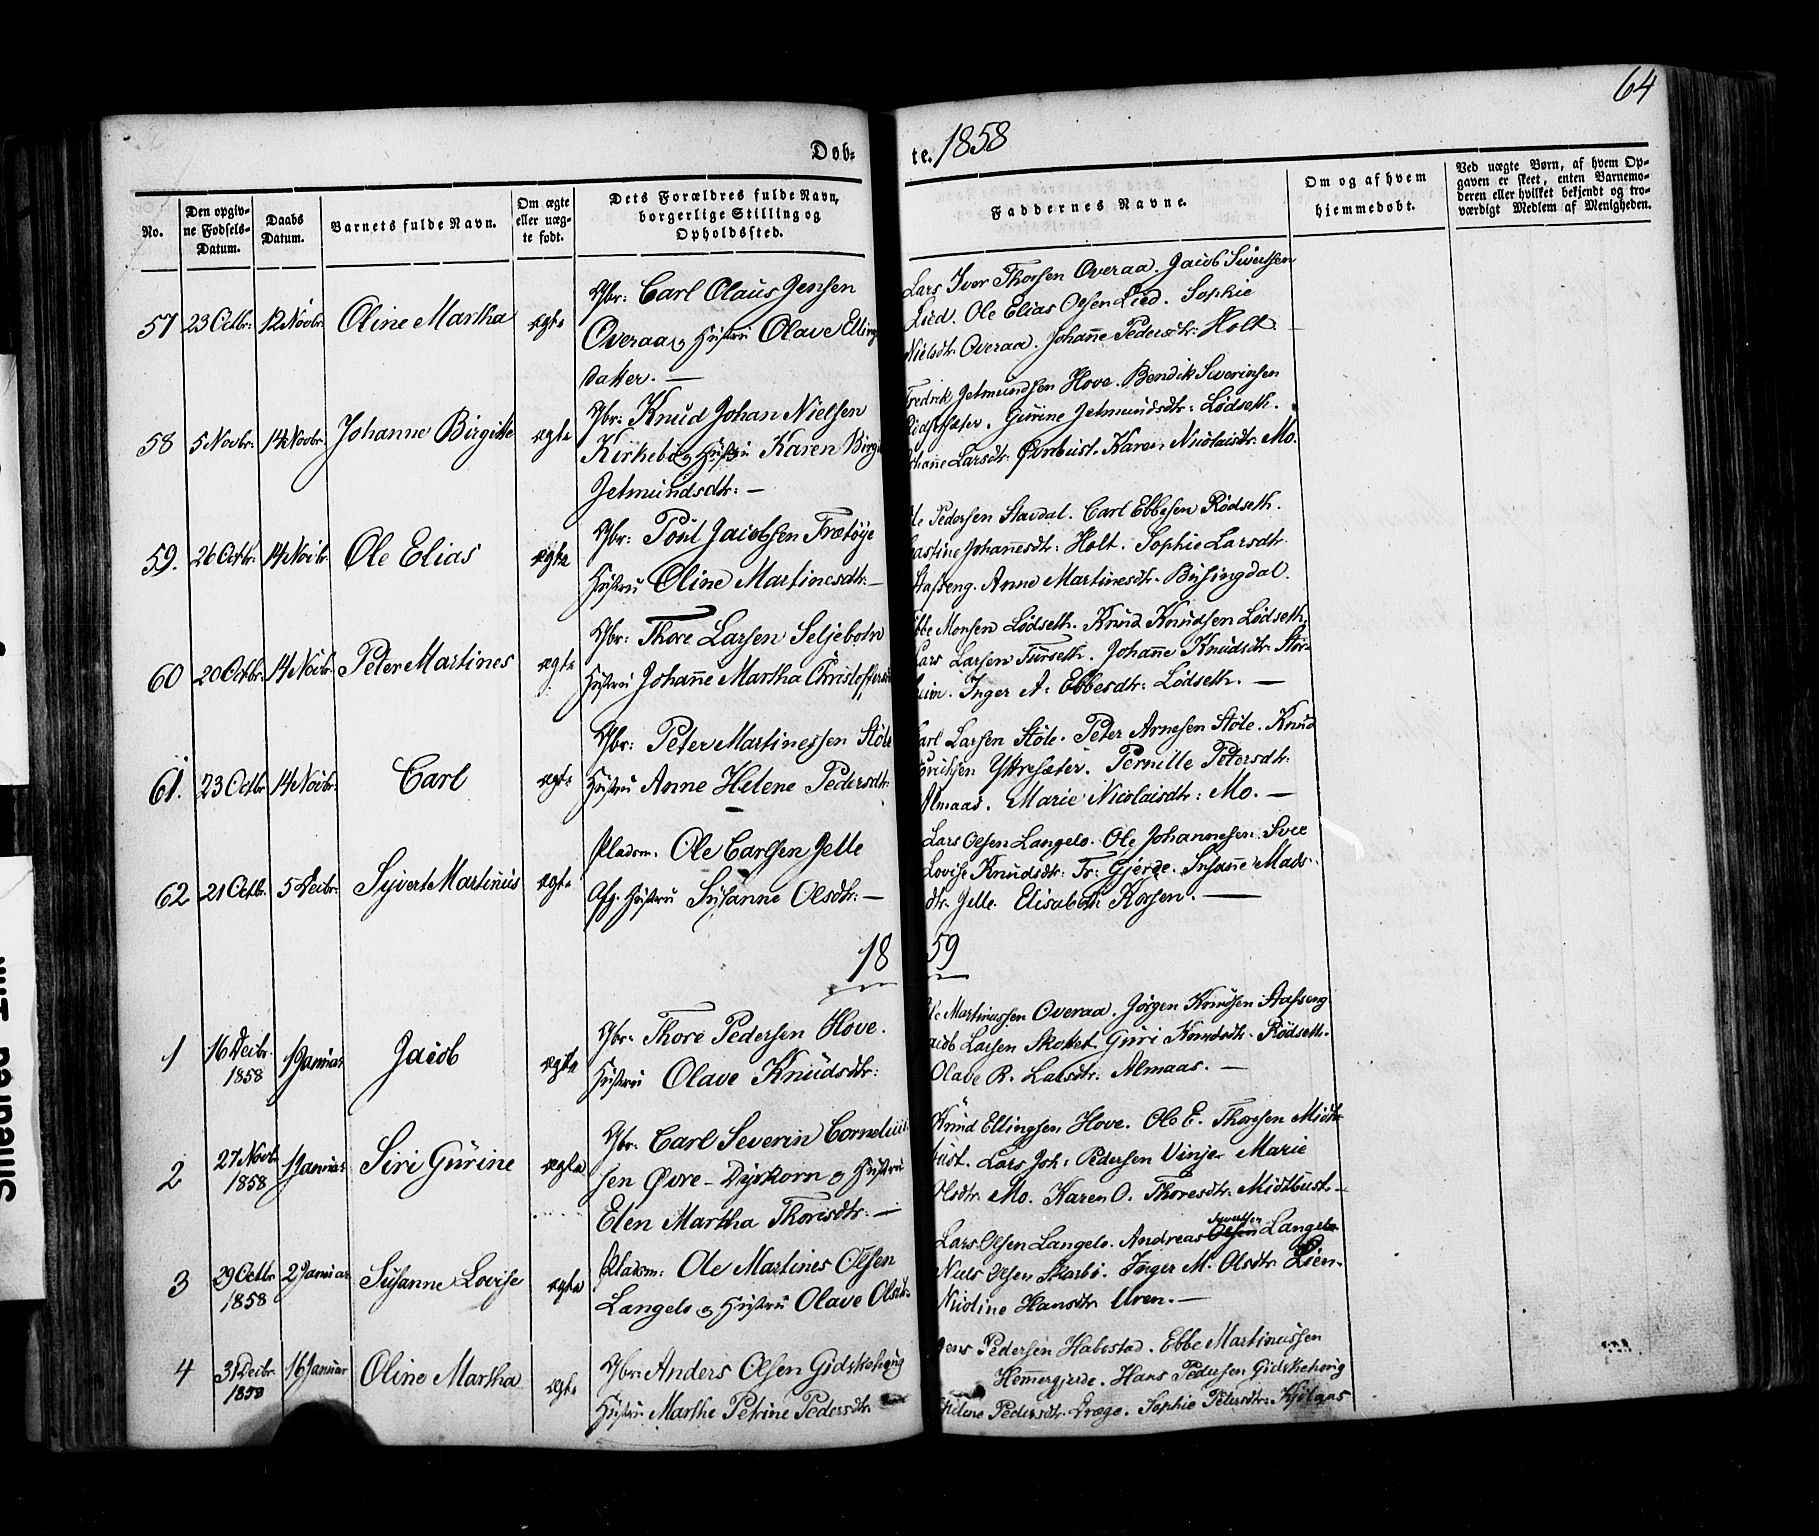 64
Døb-
te. 1858
No.
Den opgiv-
ne Fødsels-
Datum.
Daabs
Datum.
Barnets fulde Navn.
Om ægte
eller uæg-
te født.
Dets Forældres fulde Navn,
borgerlige Stilling og
Opholdssted.
Faddernes Navne.
Om og af hvem
hjemmedøbt.
Ved uægte Børn, af hvem Op-
gaven er skeet, enten Barnemo-
deren eller hvilket bekjendt og tro-
værdigt Medlem af Menigheden.
57 23 Octbr: 12 Novbr: Oline Martha ægte
Gbr: Carl Olaus Jensen
Overaa og Hustru Olave Elling
daker. —
Lars Iver Thorsen Overaa. Jacob Sivertsen
Lied. Ole Elias Olsen Lied. Sophie
Nielsdtr Overaa. Johanne Pedersdtr: Holt.
58 5 Novbr: 14 Novbr: Johanne Birgitte ægte
Gbr: Knud Johan Nielsen
Kirkebö og Hustru Karen Birgi
Jetmundsdtr: —
Fredrik Jetmundsen Hove. Bendik Severinsen
Gurine Jetmundsdtr: Lødseth.
Larsdtr: Øvrebust. Karen Nicolaisdtr: Mo.
59. 26 Octbr: 14 Novbr: Ole Elias ægte
Gbr: Poul Jacobsen Frætöye
Hustru Oline Martinesdtr: —
Pedersen Stavdal. Carl Ebbesen Rødseth.
Johannesdtr: Holt. Sophie Larsdtr.
Stafseng. Anne Martinesdtr. Busingdal.
60 20 Octbr. 14 Novbr. Peter Martines ægte
Gbr: Thore Larsen Seljebotn
Hustru Johanne Martha Christoffersd
Ebbe Monsen Lødseth. Knud Knudsen Lødseth.
Lars Larsen Furseth. Johanne Knudsdtr. Stor-
heim. Inger A: Ebbesdtr: Lødseth. —
61. 23 Octbr 14 Novbr: Carl ægte
Gbr: Peter Martinessen Stöle
Hustru Anne Helene Pedersdtr:
—
Carl Larsen Stöle. Peter Arnesen Stöle. Knud
Yttresæter. Pernille Petersdtr:
Almaas. Marie Nicolaisdtr: Mo. —
62 21 Octbr. 5 Decbr: Syvert Martinus ægte
Pladsm. Ole Carlsen Jelle
Afg. Hustru Susanne Olsdtr: —
Lars Olsen Langelo. Ole Johannesen Svee
Lovise Knudsdtr: Fr: Gjerde. Susanne Mads-
dtr. Jelle. Elisabeth Korsen. —
18 59
1 16 Decbr. 1858 1 Januar Jacob ægte
Gbr. Thore Pedersen Hove.
Hustru Olave Knudsdtr:
Ole Martinussen Overaa. Jørgen Knudsen Stafseng
Jacob Larsen Skottet. Guri Knudsdtr. Rødseth.
Olave R. Larsdtr: Almaas. —
2 27 Novbr 1858 1 Januar Siri Gurine ægte
Gbr. Carl Severin Cornelius-
sen Øvre-Dyrkorn og Hustru
Elen Martha Thorisdtr: —
Knud Ellingsen Hove. Ole E. Thorsen Midt-
bust. Lars Joh: Pedersen Vinje. Marie
Olsdtr. Mo. Karen O. Thoresdtr: Midtbust. —
3 29 Octbr 1858 2 Januar Susanne Lovise ægte
Pladsm: Ole Martines Olsen
Langelo og Hustru Olave Olsdtr.
Lars Olsen Langelo. Andreas Olsen Syvertsen Langelo
Niels Olsen Skarbö. Inger M. Olsdtr. Lien.
Nicoline Hansdtr. Uren. —
4 31 Decbr. 1858 16 Januar Oline Martha ægte
Gbr: Anders Olsen Gidskehoug
Hustru Marthe Petrine Pedersdtr.
Jens Pedersen Habostad. Ebbe Martinussen
Hemmergjerde. Hans Pedersen Gidskehoug
Pedersdtr. Drage. Sophie Petersdtr: